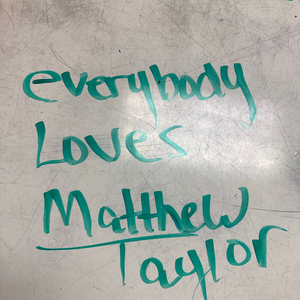 everybody
Loves
Matthew
Taylor